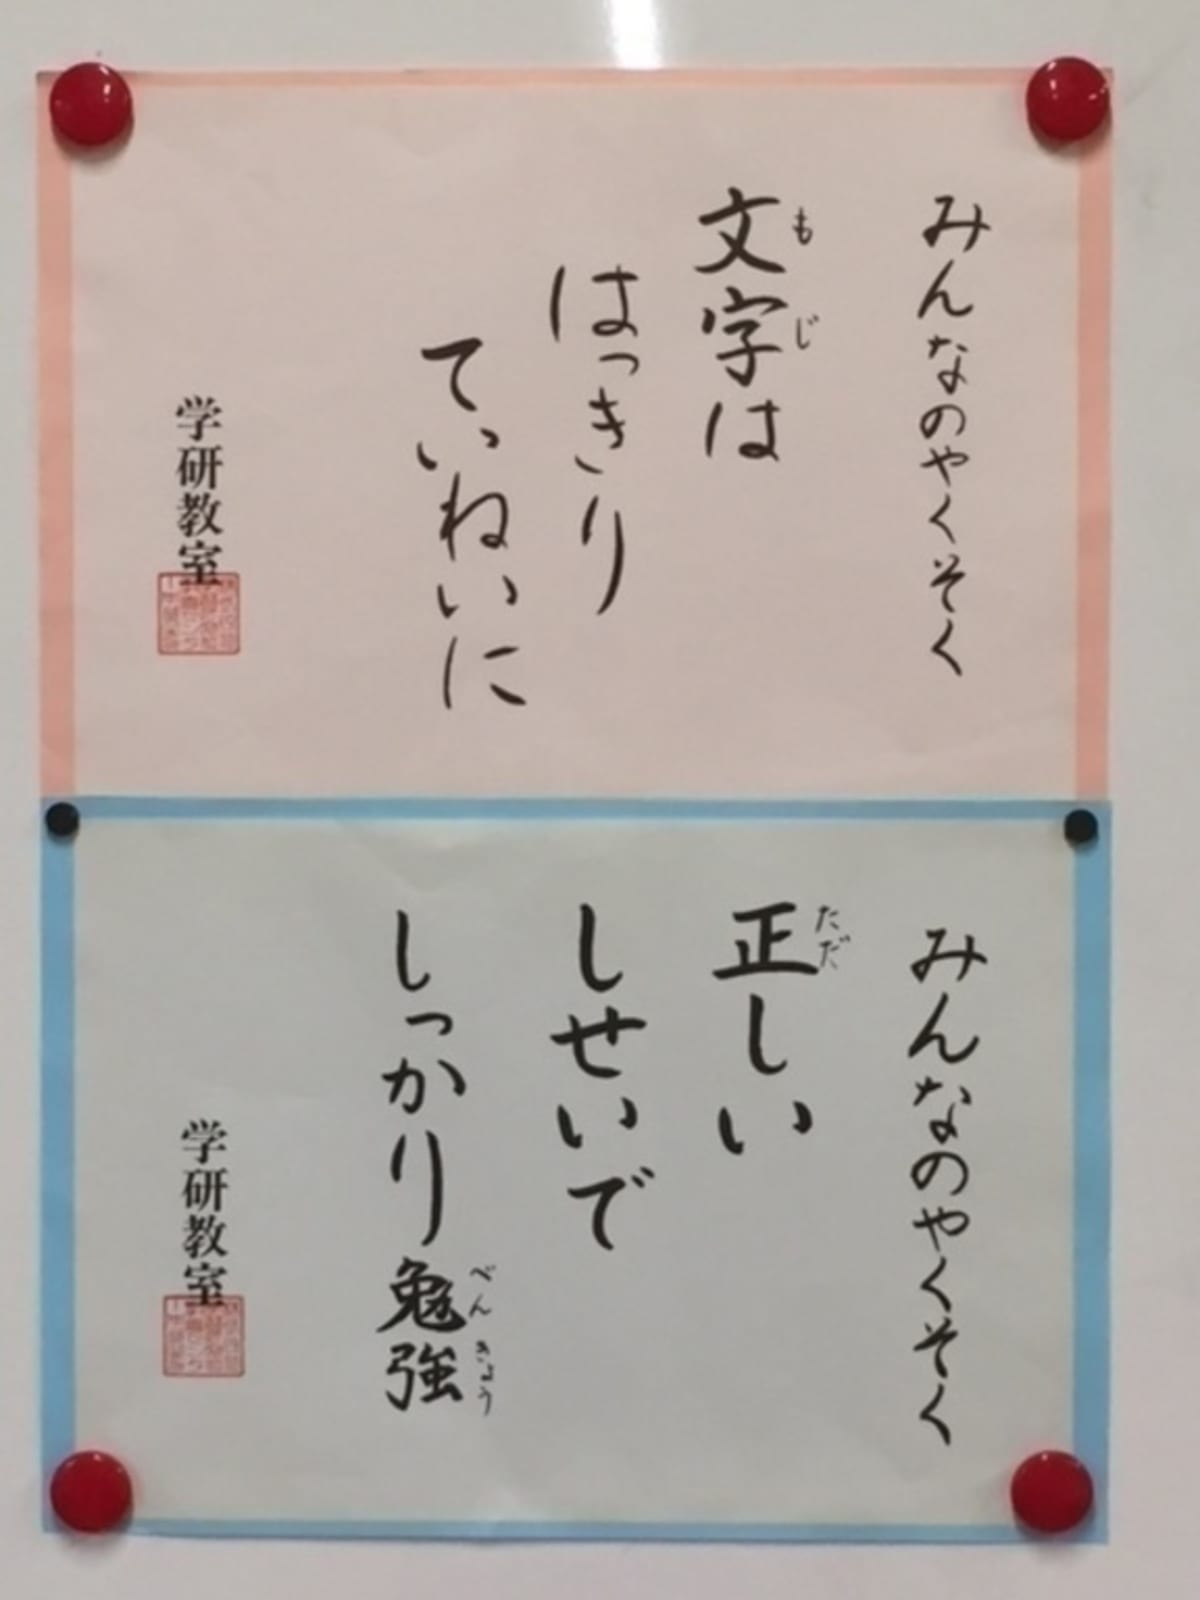 みんなのやくそく
文字は
もじ
はっきり
ていねいに
学研教室
みんなのやくそく
正しい
ただ
しせいで
しっかり勉強
べんきょう
学研教室